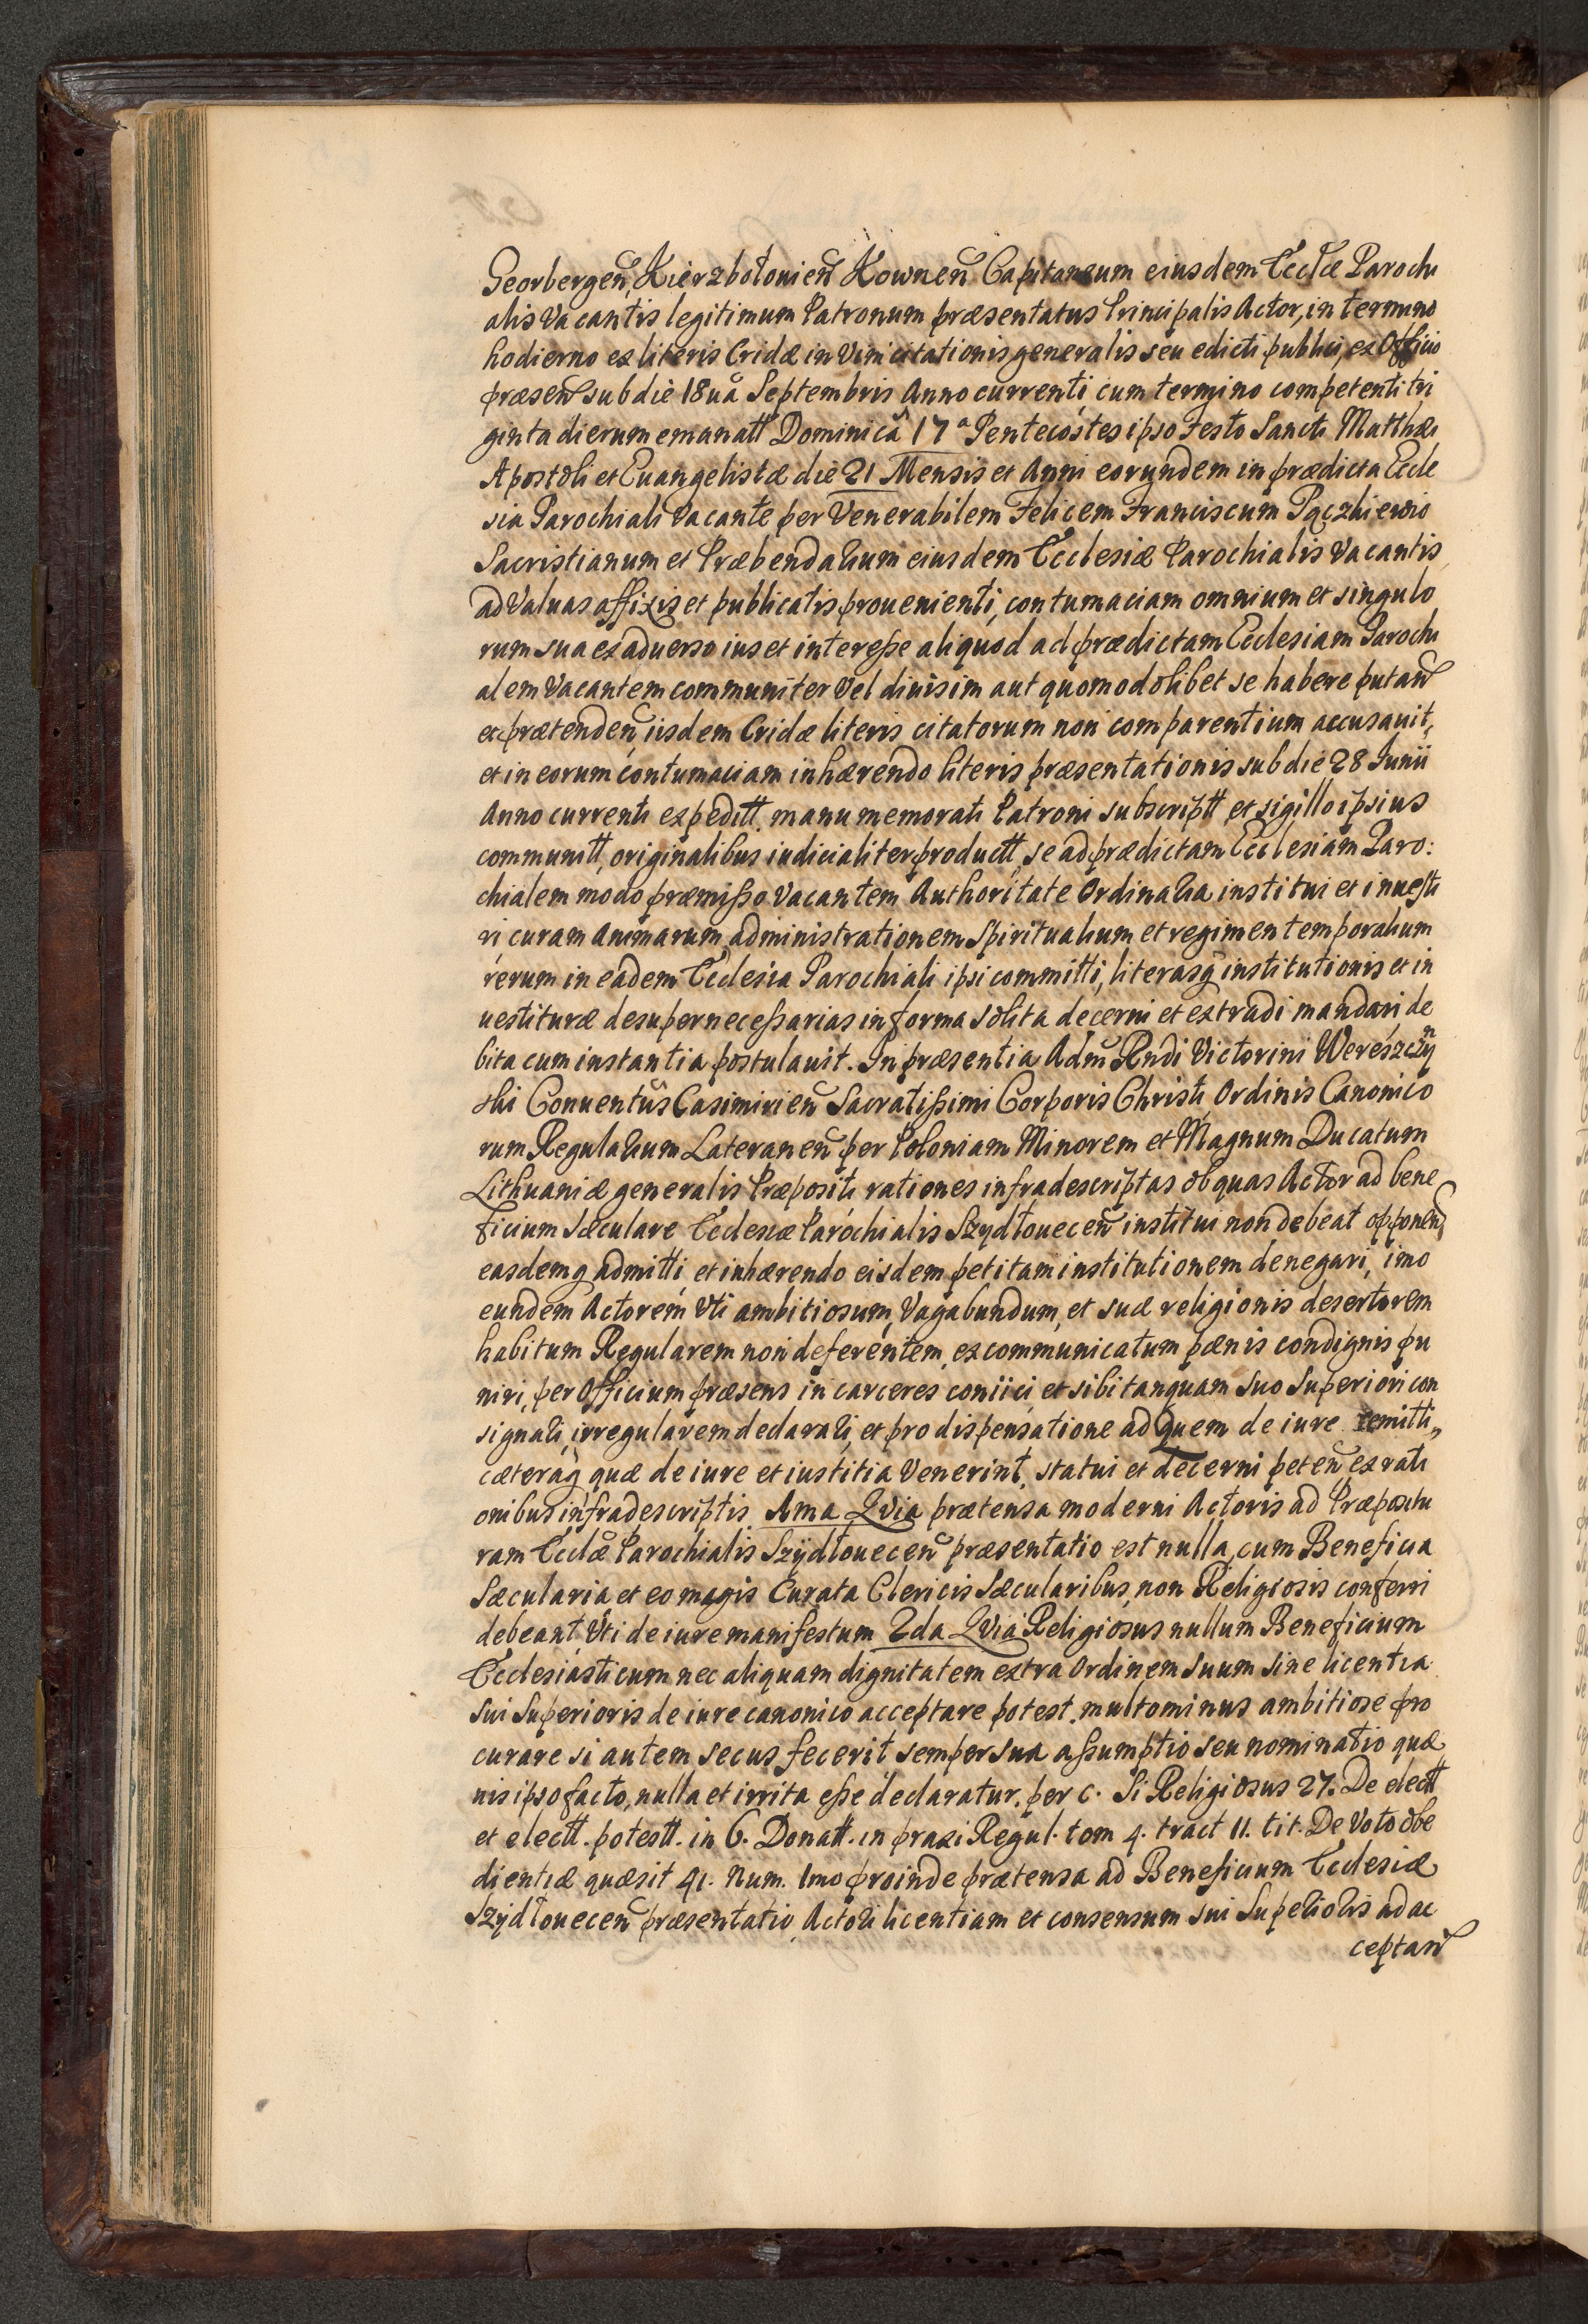 Georbergen̄, Kierzbołouien̄ Kownen̄ Capitaneum eiusdem Eccl̄æ Parochi
alis Vacantis legitimum Patronum præsentatus Principalis Actor, in termino
hodierno ex literis Cridæ in Vim citationis generalis seu edicti publici, ex Officio
præsen̄ sub die 18uâ Septembris Anno currenti, cum termino competenti tri
ginta dierum emanatt Dominicâ 17ª Pentecostes ipso Festo Sancti Matthæi
Apostoli et Euangelistæ die 21 Mensis et Anni eorundem in prædicta Eccle
sia Parochiali Vacante per Venerabilem Felicem Franciscum Pączkiewic
Sacristianum et Præbendarium eiusdem Ecclesiæ Parochialis Vacantis
ad Valuas affixis et publicatis prouenienti, contumaciam omnium et singulo
rum sua ex aduerso ius et interesse aliquod ad prædictam Ecclesiam Parochi
alem Vacantem communiter Vel diuisim aut quomodolibet se habere putan̄
et prætenden̄, iisdem Cridæ literis citatorum non comparentium accusauit,
et in eorum contumaciam inhærendo literis præsentationis sub die 28 Iunii
Anno currenti expeditt. manu memorati Patroni subscriptt et sigillo ipsius
communitt, originalibus iudicialiter productt, se ad prædictam Ecclesiam Paro:
chialem modo præmisso Vacantem Authoritate Ordinaria institui et inuesti
ri curam Animarum, administrationem Spiritualium et regimen temporalium
rerum in eadem Ecclesia Parochiali ipsi committi, literasq institutionis et in
uestituræ desuper necessarias in forma solita decerni et extradi mandari de
bita cum instantia postulauit. In præsentia Adm̄ Rndi Victorini Wereszczyn
ski Conuentûs Casimirien̄ Sacratissimi Corporis Christi, Ordinis Canonico
rum Regularium Lateranen̄ per Poloniam Minorem et Magnum Ducatum
Lithuaniæ generalis Præpositi rationes infradescriptas ob quas Actor ad bene
ficium Sæculare Ecclesiæ Parochialis Szydłouecen̄ institui non debeat opponen̄,
easdemq admitti et inhærendo eisdem petitam institutionem denegari, imo
eundem Actorem Vti ambitiosum, Vagabundum, et suæ religionis desertorem
habitum Regularem non deferentem, excommunicatum pœnis condignis pu
niri, per Officium præsens in carceres coniici et sibi tanquam suo Superiori con
signari, irregularem declarari, et pro dispensatione ad quem de iure remitti,
cæteraq quæ de iure et iustitia Venerint. statui et decerni peten̄, ex rati
onibus infradescriptis. 1ma Quia prætensa moderni Actoris ad Præpositu
ram Eccl̄æ Parochialis Szÿdłouecen̄ præsentatio est nulla, cum Beneficia
Sæcularia et eo magis Curata Clericis Sæcularibus, non Religiosis conferri
debeant Vti de iure manifestum 2da Quia Religiosus nullum Beneficium
Ecclesiasticum nec aliquam dignitatem extra Ordinem suum sine licentia
sui Superioris de iure canonico acceptare potest. multominus ambitiose pro
curare si autem secus fecerit semper sua assumptio seu nominatio quæ
uis ipso facto, nulla et irrita esse declaratur. per c. Si Religiosus 27. De electt
et electt. potestt. in 6. Donatt. in praxi Regul. tom 4. tract 11. tit. De Voto obe
dientiæ quæsit 41. Num. 1mo proinde prætensa ad Beneficium Ecclesiæ
Szÿdłouecen̄ præsentatio, Actori licentiam et consensum sui Superioris ad ac
ceptan̄